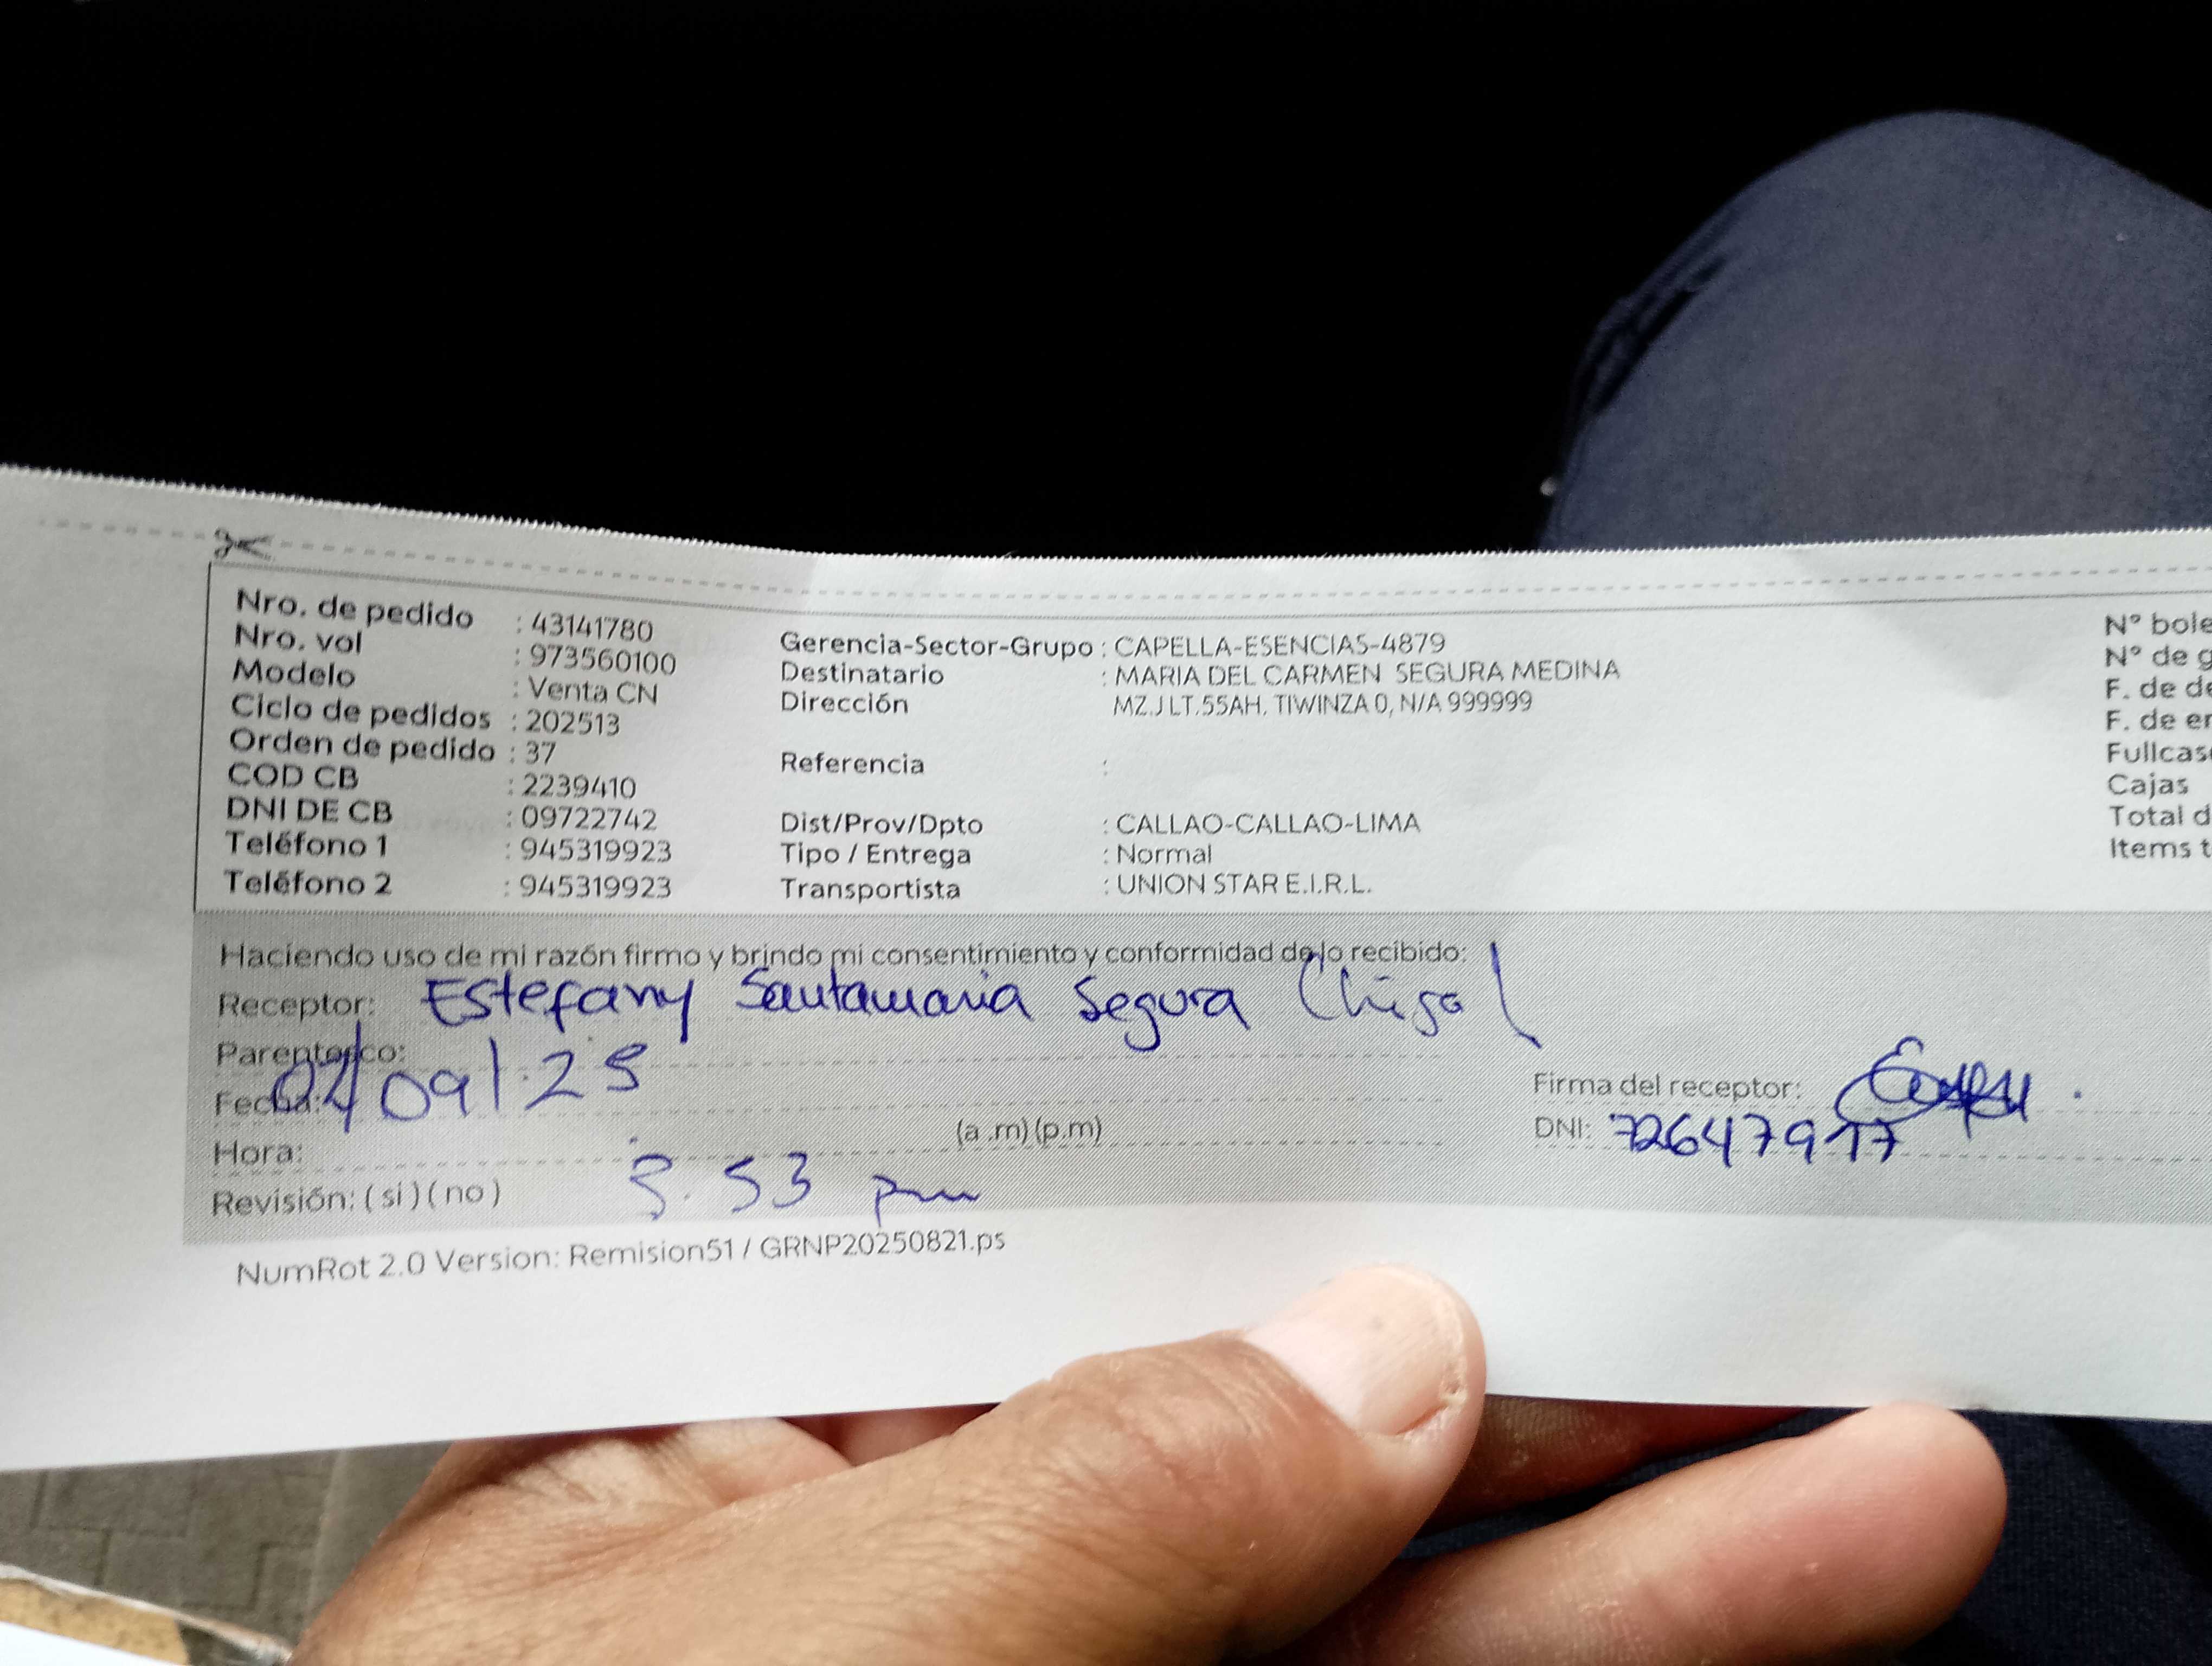 Nro. de pedido : 43141780
Nro. vol : 973560100
Modelo : Venta CN
Ciclo de pedidos : 202513
Orden de pedido : 37
COD CB : 2239410
DNI DE CB : 09722742
Teléfono 1 : 945319923
Teléfono 2 : 945319923
Gerencia-Sector-Grupo : CAPELLA-ESENCIAS-4879
Destinatario : MARIA DEL CARMEN SEGURA MEDINA
Dirección MZ.J LT.55AH. TIWINZA 0, N/A 999999
Referencia :
Dist/Prov/Dpto : CALLAO-CALLAO-LIMA
Tipo / Entrega : Normal
Transportista : UNION STAR E.I.R.L.
N° bole
N° de g
F. de de
F. de en
Fullcase
Cajas
Total d
Items t
Haciendo uso de mi razón firmo y brindo mi consentimiento y conformidad de lo recibido:
Receptor: Estefany Santamaria Segura (hija)
Parentesco:
Fecha: 04/09/25
Hora: (a.m)(p.m)
Revisión: (si)(no) 3.53 pm
Firma del receptor:
DNI: 72647917
NumRot 2.0 Version: Remision51 / GRNP20250821.ps